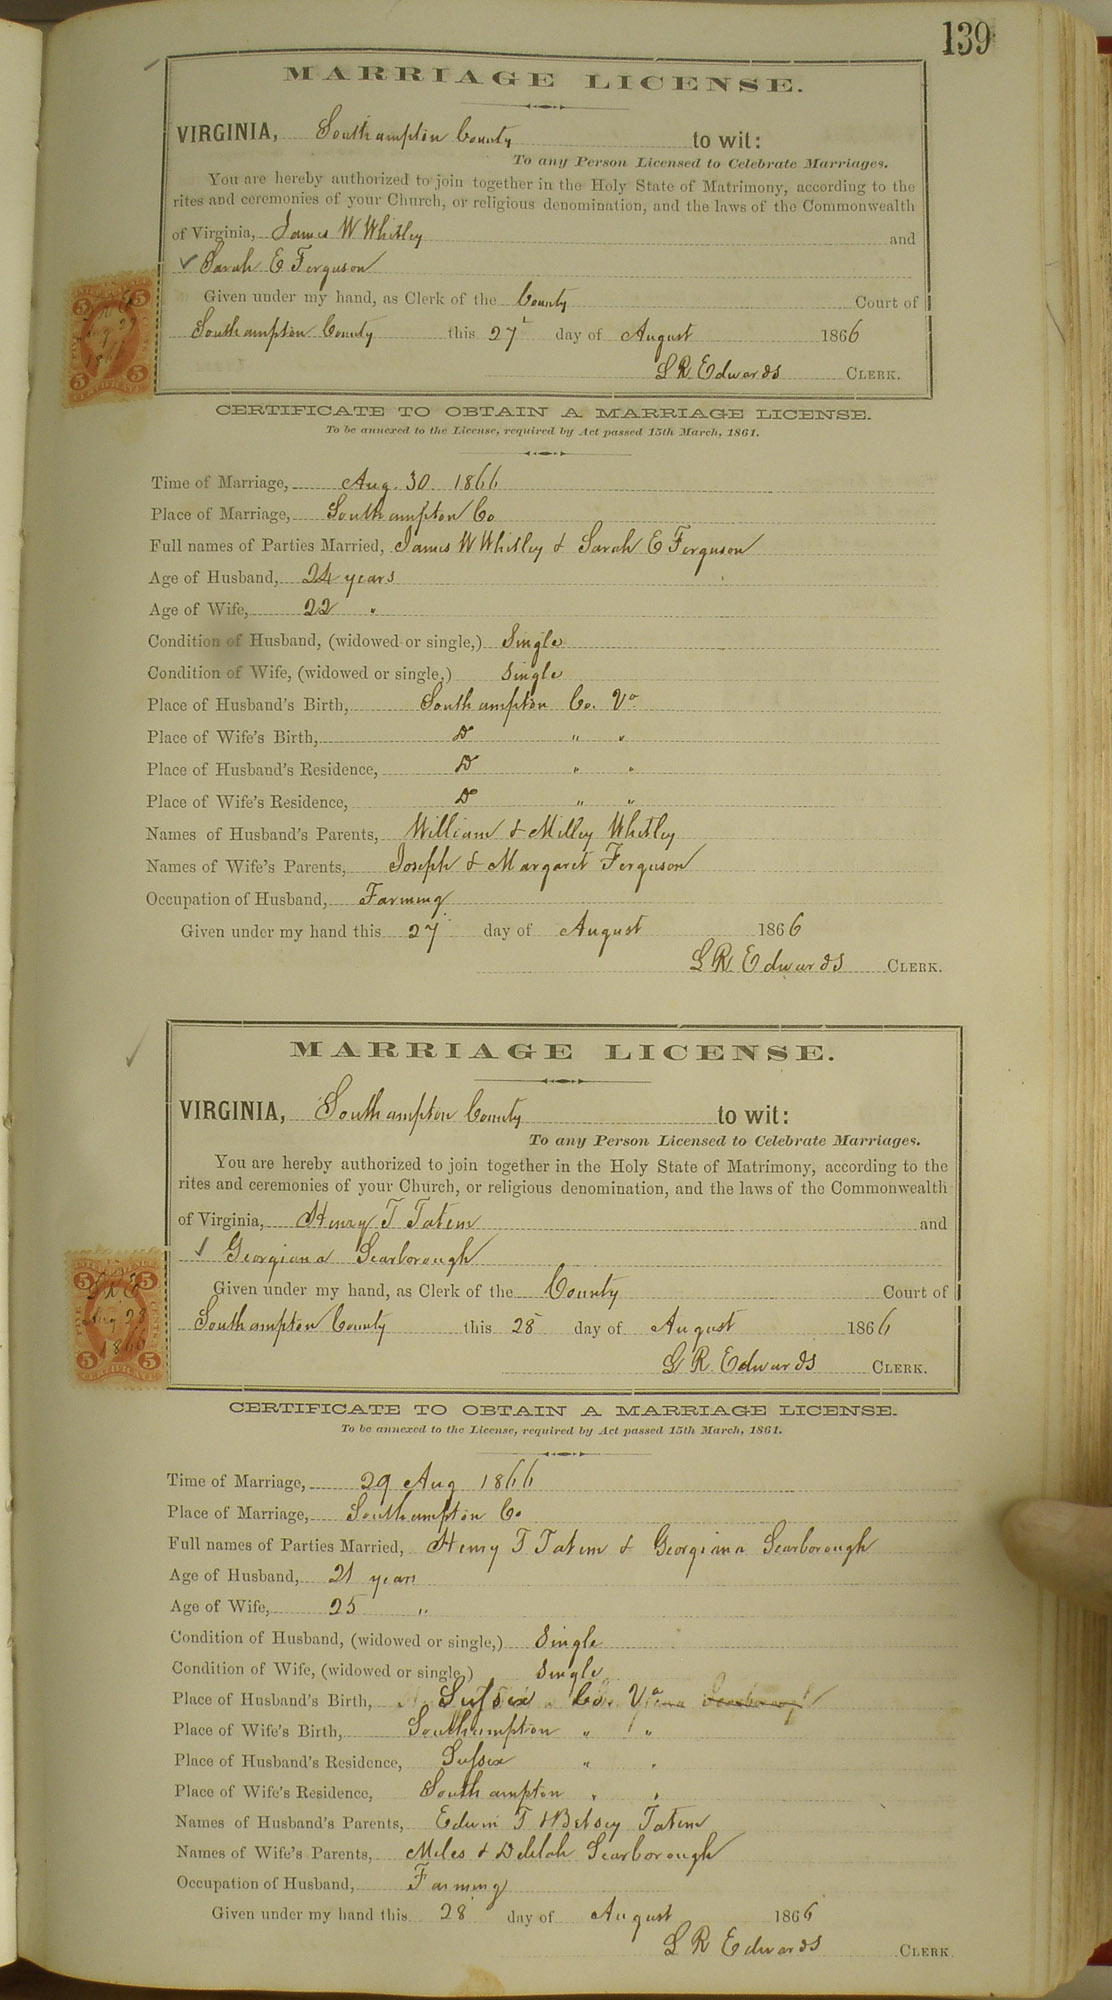 139
MARRIAGE LICENSE.
VIRGINIA, Southampton County to wit:
To any Person Licensed to Celebrate Marriages.
You are hereby authorized to join together in the Holy State of Matrimony, according to the
rites and ceremonies of your Church, or religious denomination, and the laws of the Commonwealth
of Virginia, James W Whitley and
Sarah E Ferguson
Given under my hand, as Clerk of the County Court of
Southampton County this 27 day of August 1866
L R Edwards CLERK.
CERTIFICATE TO OBTAIN A MARRIAGE LICENSE.
To be annexed to the License, required by Act passed 15th March, 1861.
Time of Marriage, Aug. 30 1866
Place of Marriage, Southampton Co
Full names of Parties Married, James W Whitley & Sarah E Ferguson
Age of Husband, 24 years
Age of Wife, 22 "
Condition of Husband, (widowed or single,) Single
Condition of Wife, (widowed or single,) Single
Place of Husband's Birth, Southampton Co. Va
Place of Wife's Birth, Do " "
Place of Husband's Residence, Do " "
Place of Wife's Residence, Do " "
Names of Husband's Parents, William & Milley Whitley
Names of Wife's Parents, Joseph & Margaret Ferguson
Occupation of Husband, Farming
Given under my hand this 27 day of August 1866
L R Edwards CLERK.
MARRIAGE LICENSE.
VIRGINIA, Southampton County to wit:
To any Person Licensed to Celebrate Marriages.
You are hereby authorized to join together in the Holy State of Matrimony, according to the
rites and ceremonies of your Church, or religious denomination, and the laws of the Commonwealth
of Virginia, Henry T Tatem and
Georgiana Scarborough
Given under my hand, as Clerk of the County Court of
5 5
L.R.E
Aug 28
1866
5 5
CERTIFICATE
Southampton County this 28 day of August 1866
L R Edwards CLERK.
CERTIFICATE TO OBTAIN A MARRIAGE LICENSE.
To be annexed to the License, required by Act passed 15th March, 1861.
Time of Marriage, 29 Aug 1866
Place of Marriage, Southampton Co
Full names of Parties Married, Henry T Tatem & Georgiana Scarborough
Age of Husband, 21 years
Age of Wife, 25 "
Condition of Husband, (widowed or single,) Single
Condition of Wife, (widowed or single,) Single
Place of Husband's Birth, Sussex Co. Va
Place of Wife's Birth, Southampton " "
Place of Husband's Residence, Sussex " "
Place of Wife's Residence, Southampton " "
Names of Husband's Parents, Edwin T & Betsey Tatem
Names of Wife's Parents, Miles & Delilah Scarborough
Occupation of Husband, Farming
Given under my hand this 28 day of August 1866
L R Edwards CLERK.